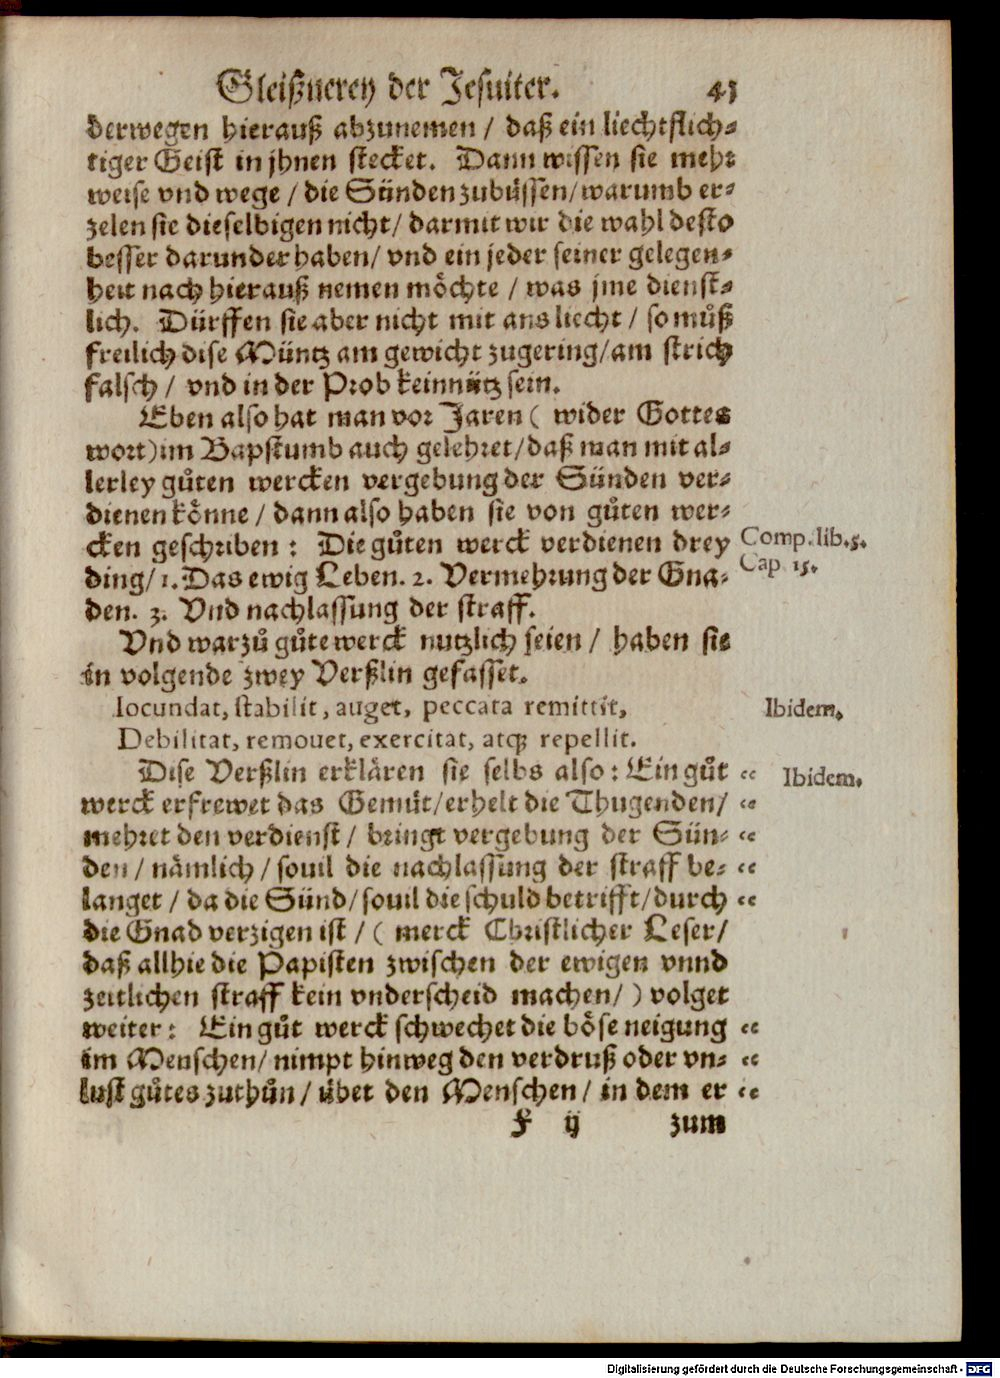 Gleißnerey der Jesuiter. 43
derwegen hierauß abzunemen / daß ein liechtflich⸗
tiger Geist in jhnen stecket. Dann wissen sie mehr
weise vnd wege / die Sünden zubüssen / warumb er⸗
zelen sie dieselbigen nicht / darmit wir die wahl desto
besser darunder haben / vnd ein jeder seiner gelegen⸗
heit nach hierauß nemen möchte / was jme dienst⸗
lich. Dürffen sie aber nicht mit ans liecht / so můß
freilich dise Müntz am gewicht zugering / am strich
falsch / vnd in der Prob kein nütz sein.
Eben also hat man vor Jaren ( wider Gottes
wort) im Bapstumb auch gelehret / daß man mit al⸗
lerley gůten wercken vergebung der Sünden ver⸗
dienen könne / dann also haben sie von gůten wer⸗
cken geschriben : Die gůten werck verdienen drey
Comp. lib. 5.
Cap 15.
ding / 1. Das ewig Leben. 2. Vermehrung der Gna⸗
den. 3. Vnd nachlassung der straff.
Vnd warzů gůte werck nutzlich seien / haben sie
in volgende zwey Verßlin gefasset.
Iocundat, stabilit, auget, peccata remittit,
Ibidem.
Debilitat, remouet, exercitat, atq; repellit.
Dise Verßlin erklären sie selbs also : Ein gůt “
Ibidem.
werck erfrewet das Gemüt / erhelt die Thugenden / “
mehret den verdienst / bringt vergebung der Sün⸗ “
den / nämlich / souil die nachlassung der straff be⸗ “
langet / da die Sünd / souil die schuld betrifft / durch “
die Gnad verzigen ist / ( merck Christlicher Leser /
daß allhie die Papisten zwischen der ewigen vnnd
zeitlichen straff kein vnderscheid machen / ) volget
weiter : Ein gůt werck schwechet die böse neigung “
im Menschen / nimpt hinweg den verdruß oder vn⸗ “
lust gůtes zuthůn / übet den Menschen / in dem er “
F ij zum
Digitalisierung gefördert durch die Deutsche Forschungsgemeinschaft - DFG